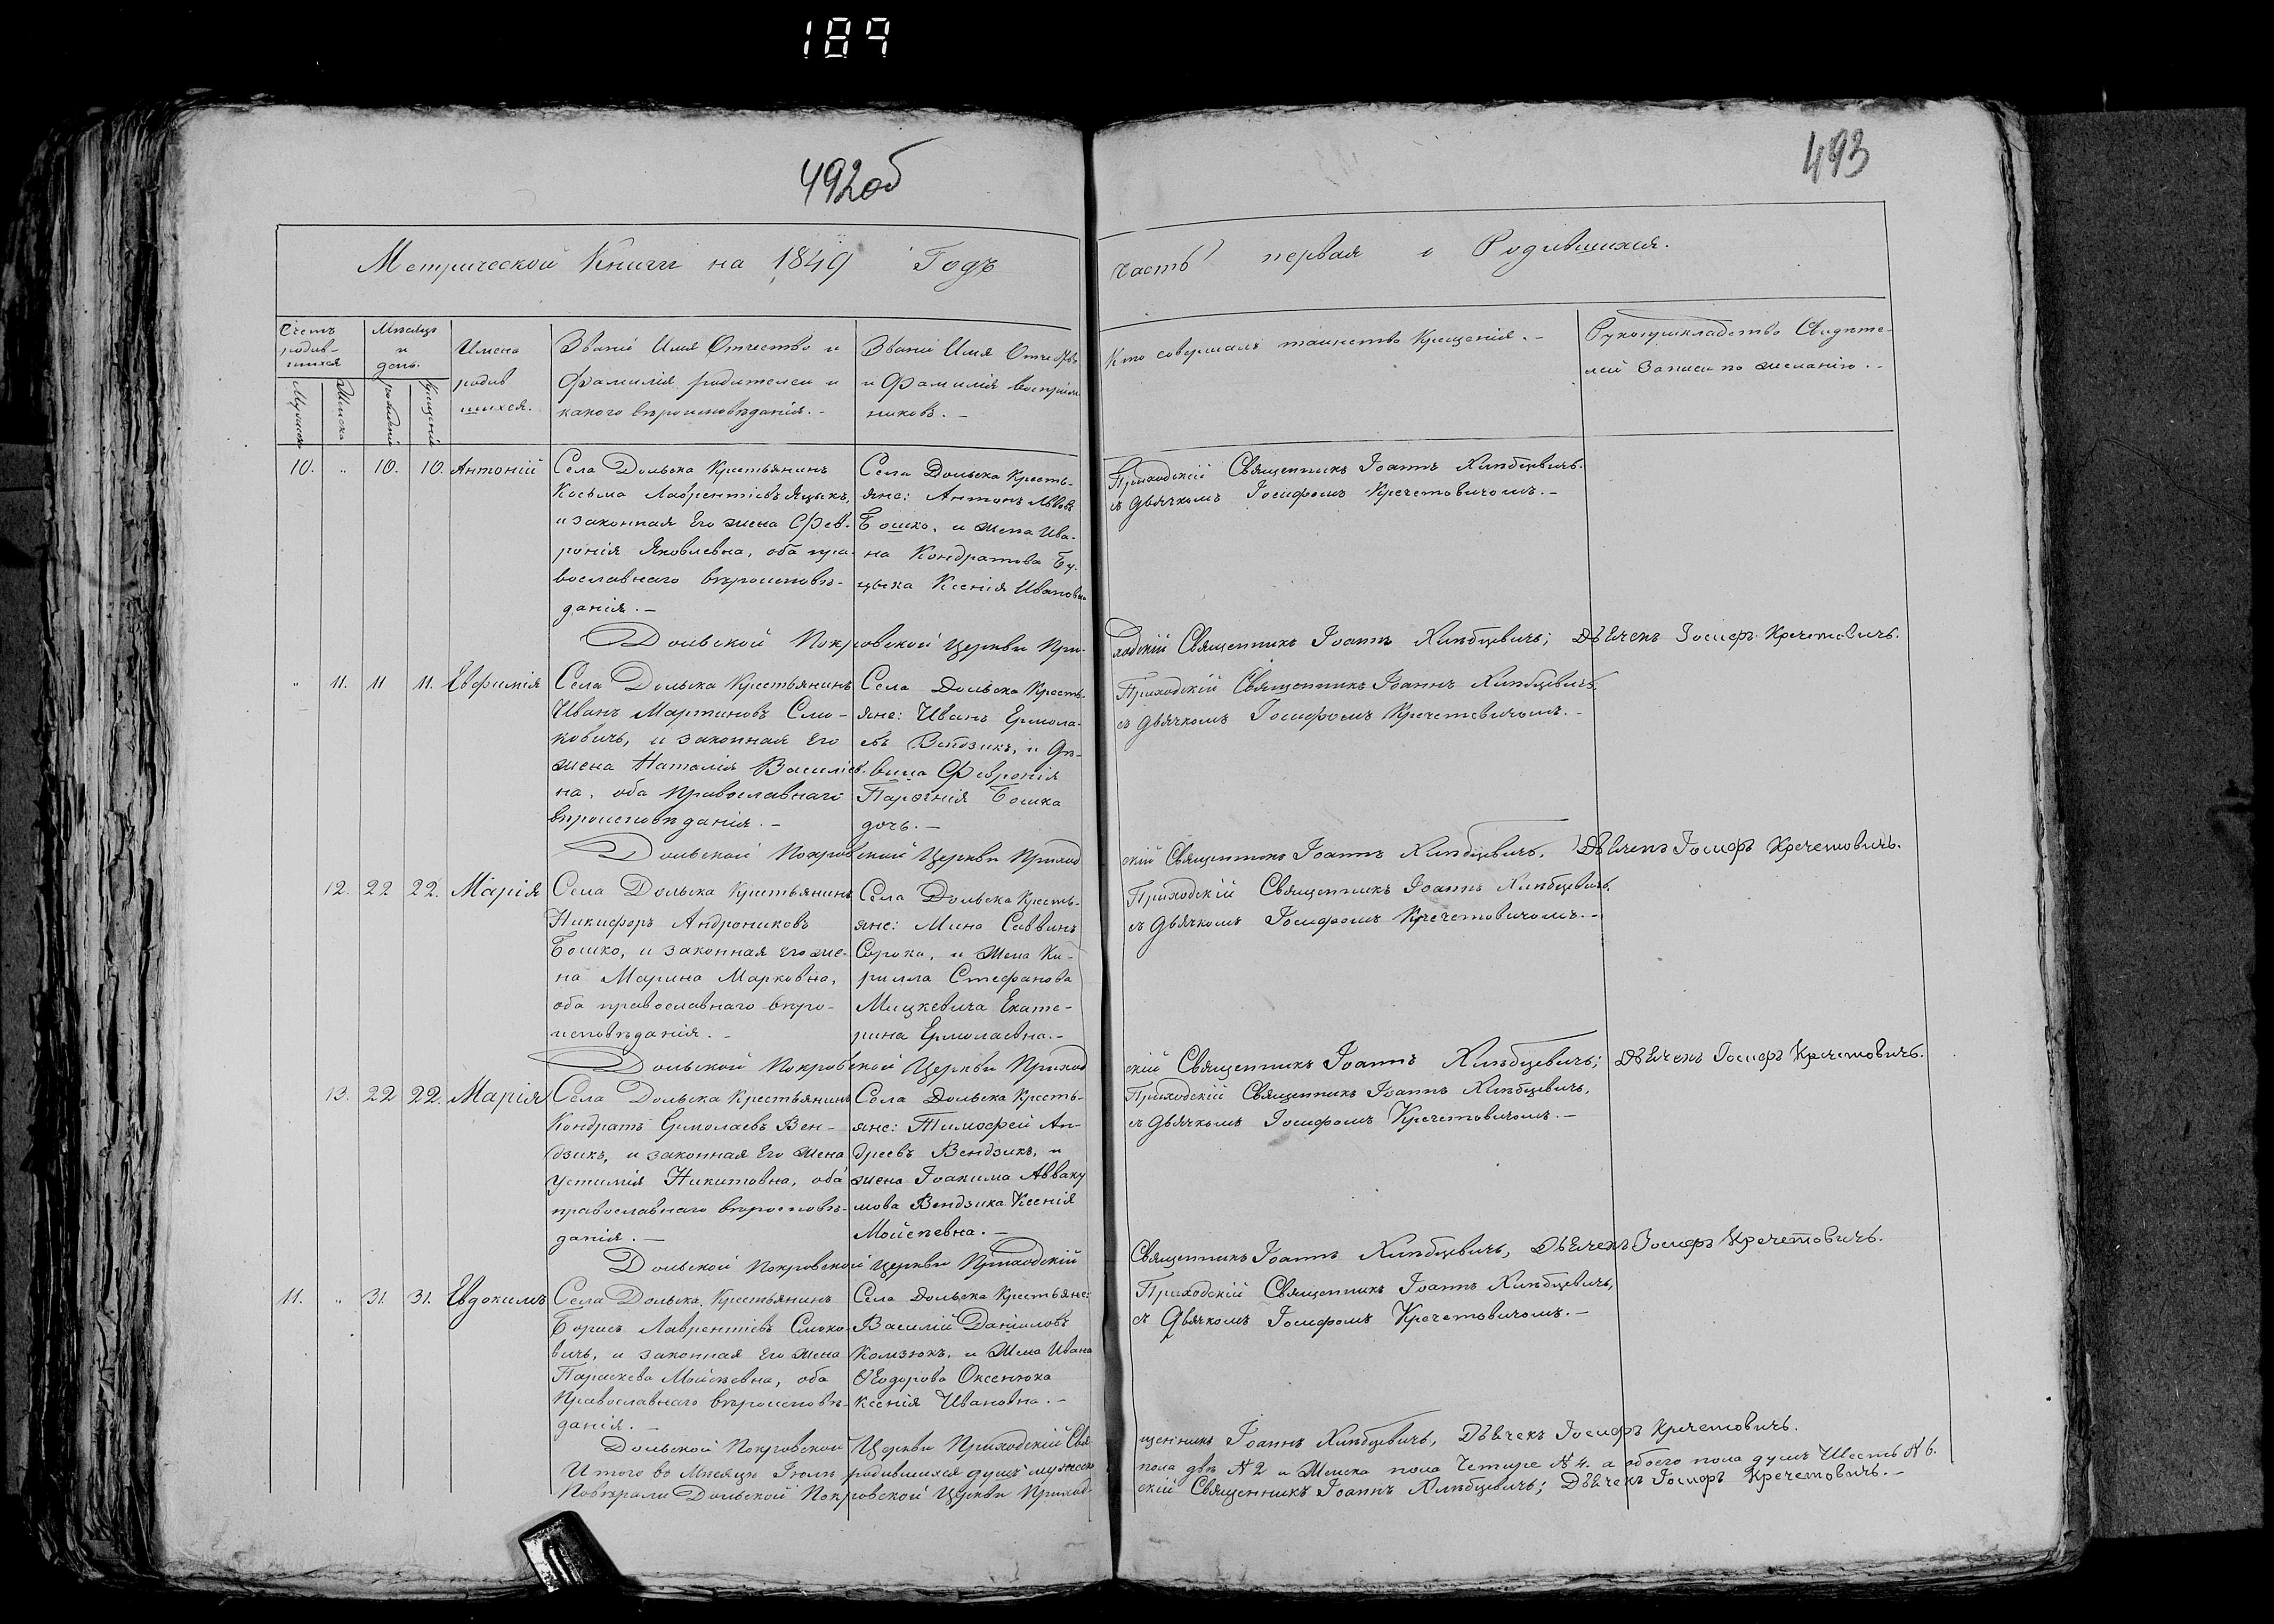 189
492об
493
Метрической Книги на 1849 Годъ
часть первая о Родившихся.
Счетъ родив-шихся
Мужеска
Женска
Мѣсяцъ и день.
рожденія
Крещенія
Имена родив шихся.
Званіе Имя Отчество и фамилія родителей и какого вѣроисповѣданія. -
Званіе Имя Отчество и Фамилія воспріем ников. -
Кто совершалъ таинство Крещенія. -
Рукоприкладство Свидѣте-лей Записи по желанію. -
10. „ 10. 10. Антоній
Села Дольска Крестьянинъ
Косьма Лаврентіевъ Яцыкъ,
и законная Его жена Фев-
ронія Яковлевна, оба пра-
вославнаго вѣроисповѣ-
данія. -
Села Дольска Кресть-
яне: Антонъ Львовъ
Бошко, и жена Ива-
на Кондратова Бу-
цыка Ксенія Ивановна
Приходскій Священникъ Іоаннъ Хлѣбцевичъ.
съ дьячкомъ Іосифомъ Кречетовичомъ. -
Дольской Покровской Церкви При-
ходскій Священникъ Іоаннъ Хлѣбцевичъ; Дьячекъ Іосифъ Кречетовичъ.
„ 11. 11 11. Евфимія
Села Дольска Крестьянинъ
Иванъ Мартиновъ Смо-
ковичъ, и законная Его
жена Наталія Василіев-
на, оба Православнаго
вѣроисповѣданія. -
Села Дольска Кресть-
яне: Иванъ Ермола-
евъ Вендзикъ, и Дѣ-
вица Февронія
Бошка
дочь. -
Приходскій Священникъ Іоаннъ Хлѣбцевичъ,
съ дьячкомъ Іосифомъ Кречетовичомъ. -
Дольской Покровской Церкви Приход
скій Священникъ Іоаннъ Хлѣбцевичъ, Дьячекъ Іосифъ Кречетовичъ.
12. 22 22. Марія
Села Дольска Крестьянинъ
Никифоръ Андрониковъ
Бошко, и законная его же-
на Марина Марковна,
оба православнаго вѣро-
исповѣданія. -
Села Дольска Кресть-
яне: Мина Саввинъ
Сорока, и жена Ки-
рилла Стефанова
Мицкевича Екате-
рина Ермолаевна. -
Приходскій Священникъ Іоаннъ Хлѣбцевичъ,
съ дьячкомъ Іосифомъ Кречетовичомъ. -
Дольской Покровской Церкви Приход
скій Священникъ Іоаннъ Хлѣбцевичъ; Дьячекъ Іосифъ Кречетовичъ.
13. 22 22. Марія
Села Дольска Крестьянинъ
Кондратъ Ермолаевъ Вен-
дзикъ, и законная Его жена
Устимія Никитовна, оба
православнаго вѣроисповѣ-
данія. -
Села Дольска Кресть-
яне: Тимофей Ан-
дреевъ Вендзикъ, и
жена Іоакима Авваку
мова Вендзика Ксенія
Моисеевна. -
Приходскій Священникъ Іоаннъ Хлѣбцевичъ,
съ дьячкомъ Іосифомъ Кречетовичомъ. -
Дольской Покровской Церкви Приходскій
Священникъ Іоаннъ Хлѣбцевичъ, Дьячекъ Іосифъ Кречетовичъ.
11. „ 31. 31. Евдокимъ
Села Дольска, Крестьянинъ
Борисъ Лаврентіевъ Смоко-
вичъ, и законная Его жена
Параскева Моисеевна, оба
Православнаго вѣроисповѣ-
данія. -
Села Дольска Крестьяне:
Василій Даніиловъ
Комзюкъ, и Жена Ивана
Ѳеодорова Оксентюка
Ксенія Ивановна. -
Приходскій Священникъ Іоаннъ Хлѣбцевичъ,
съ Дьячкомъ Іосифомъ Кречетовичомъ. -
Дольской Покровской Церкви Приходскій Свя
щенникъ Іоаннъ Хлѣбцевичъ, Дьячекъ Іосифъ Кречетовичъ.
Итого въ Мѣсяцѣ Іюлѣ родившихся душъ мужеска
пола двѣ № 2 и Женска пола Четыре № 4. а обоего пола душъ Шесть № 6.
Повѣряли Дольской Покровской Церкви Приход-
скій Священникъ Іоаннъ Хлѣбцевичъ; Дьячекъ Іосифъ Кречетовичъ. -